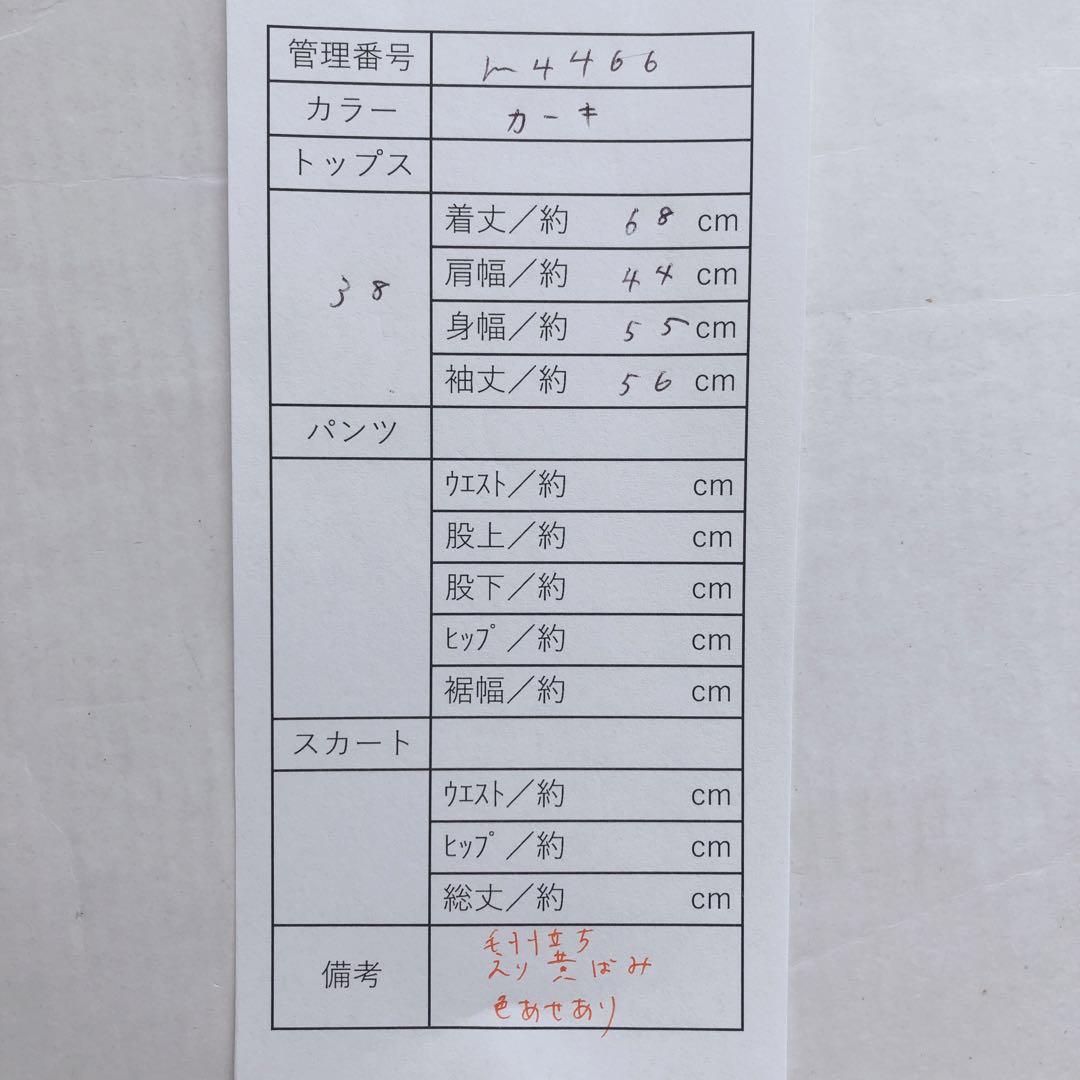 管理番号 m4466
カラー カーキ
トップス
38
着丈／約 68 cm
肩幅／約 44 cm
身幅／約 55 cm
袖丈／約 56 cm
パンツ
ｳｴｽﾄ／約 cm
股上／約 cm
股下／約 cm
ﾋｯﾌﾟ／約 cm
裾幅／約 cm
スカート
ｳｴｽﾄ／約 cm
ﾋｯﾌﾟ／約 cm
総丈／約 cm
備考
毛羽立ち
えり黄ばみ
色あせあり